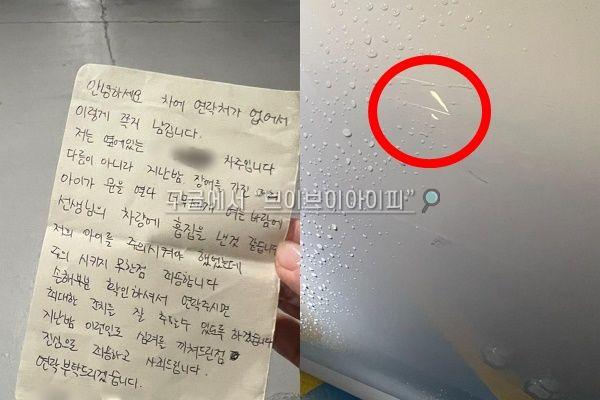 안녕하세요 차에 연락처가 없어서
이렇게 쪽지 남깁니다.
저는 옆에있는 차주입니다
다름이 아니라 지난밤 장애를 가진
아이가 문을 열다 여는 바람에
선생님의 차량에 흠집을 낸것 같습니다
저의 아이를 주의시켜야 했었는데
주의 시키지 못한점 죄송합니다
손해부분 확인하셔서 연락주시면
최대한 조치를 잘 취할수 있도록 하겠습니다
지난밤 이런일로 심려를 끼쳐드린점
진심으로 죄송하고 사죄드립니다.
연락 부탁드리겠습니다.
구글에서 "브이브이아이피"